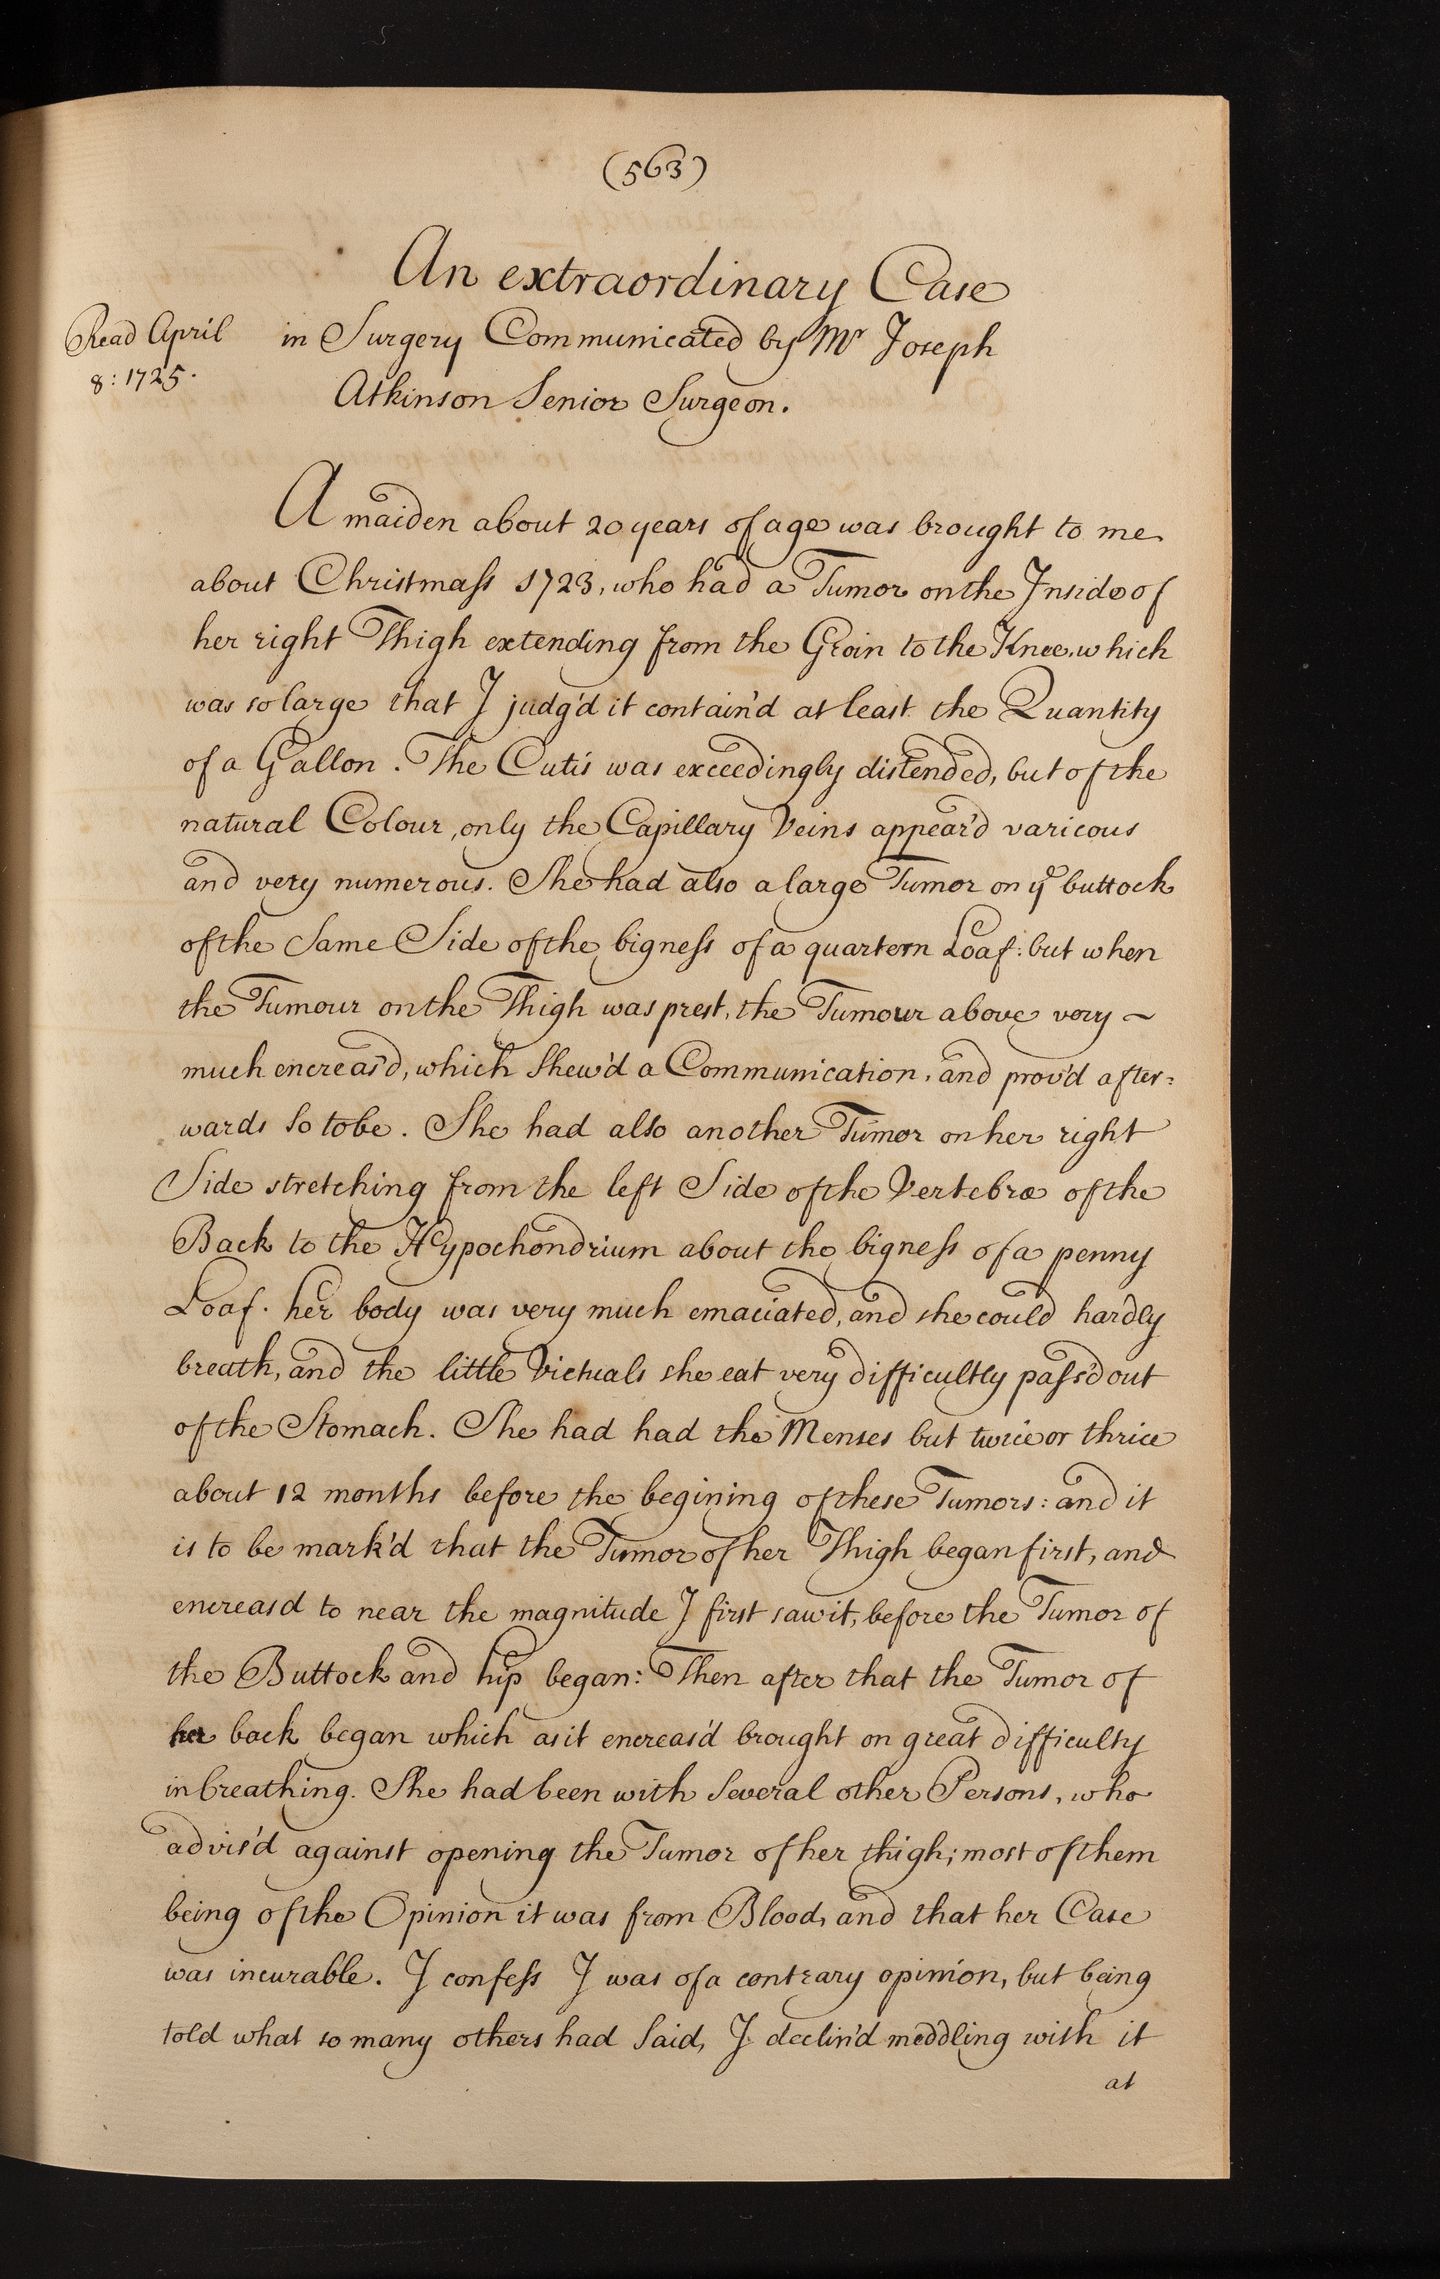 (563)
An extraordinary Case
Read April
8: 1725.
in Surgery Communicated by Mr Joseph
Atkinson Senior Surgeon.
A maiden about 20 years of age was brought to me
about Christmass 1723, who had a Tumor on the Inside of
her right Thigh extending from the Groin to the Knee, which
was so large that I judg'd it contain'd at least the Quantity
of a Gallon. The Cutis was exceedingly distended, but of the
natural Colour, only the Capillary Veins appear'd varicous
and very numerous. She had also a large Tumor on ye buttock
of the Same Side of the bigness of a quartern Loaf: but when
the Tumour on the Thigh was prest, the Tumour above very ~
much encreas'd, which Shew'd a Communication, and prov'd after=
wards So to be. She had also another Tumor on her right
Side stretching from the left Side of the Vertebræ of the
Back to the Hypochondrium about the bigness of a penny
Loaf. her body was very much emaciated, and she could hardly
breath, and the little Victuals she eat very difficultly pass'd out
of the Stomach. She had had the Menses but twice or thrice
about 12 months before the begining of these Tumors: and it
is to be mark'd that the Tumor of her Thigh began first, and
encreasd to near the magnitude I first saw it, before the Tumor of
the Buttock and hip began: Then after that the Tumor of
her back began which as it encreas'd brought on great difficulty
in breathing. She had been with Several other Persons, who
advis'd against opening the Tumor of her thigh; most of them
being of the Opinion it was from Blood, and that her Case
was incurable. I confess I was of a contrary opinion, but being
told what so many others had Said, I declin'd meddling with it
at